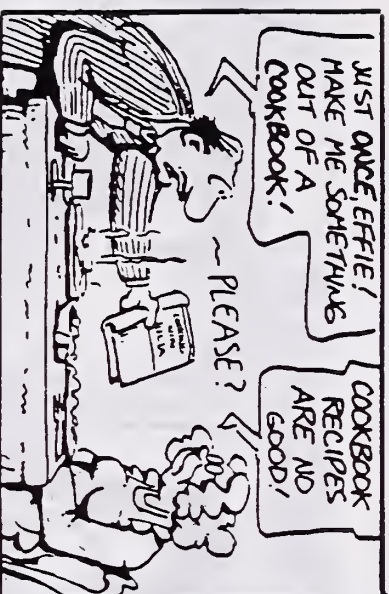 JUST ONCE, EFFIE!
MAKE ME SOMETHING
OUT OF A
COOKBOOK!
~ PLEASE?
COOKBOOK
RECIPES
ARE NO
GOOD!